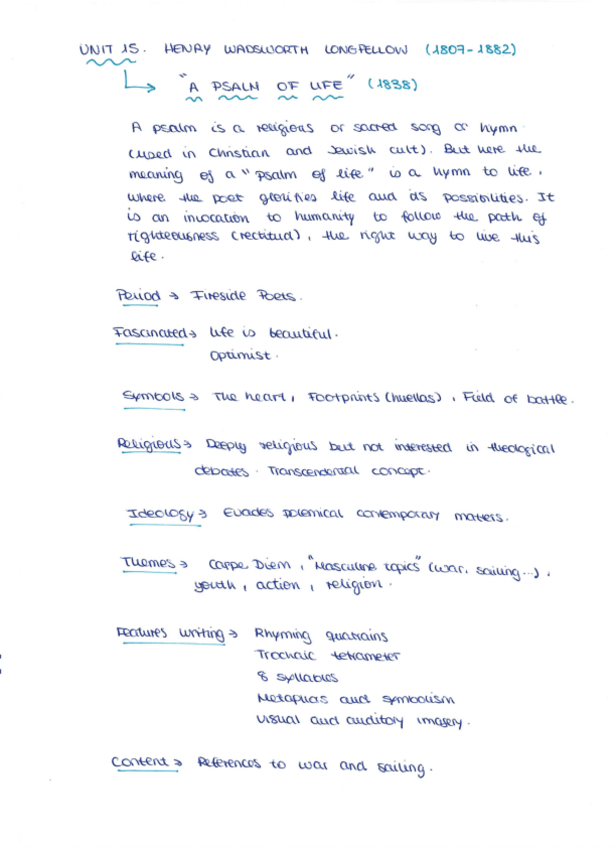 UNIT 15. HENRY WADSWORTH LONGFELLOW (1807-1882)
"A PSALM OF LIFE" (1838)
A psalm is a religious or sacred song or hymn
(used in Christian and Jewish cult). But here the
meaning of a "psalm of life" is a hymn to life,
where the poet glorifies life and its possibilities. It
is an invocation to humanity to follow the path of
righteousness (rectitud), the right way to live this
life.
Period → Fireside Poets.
Fascinated → Life is beautiful.
Optimist.
Symbols → The heart, Footprints (huellas), Field of battle.
Religious → Deeply religious but not interested in theological
debates. Transcendental concept.
Ideology → Evades polemical contemporary matters.
Themes → Carpe Diem, "Masculine topics" (war, sailing...),
youth, action, religion.
Features writing → Rhyming quatrains
Trochaic tetrameter
8 syllables
Metaphors and symbolism
Visual and auditory imagery.
Content → References to war and sailing.